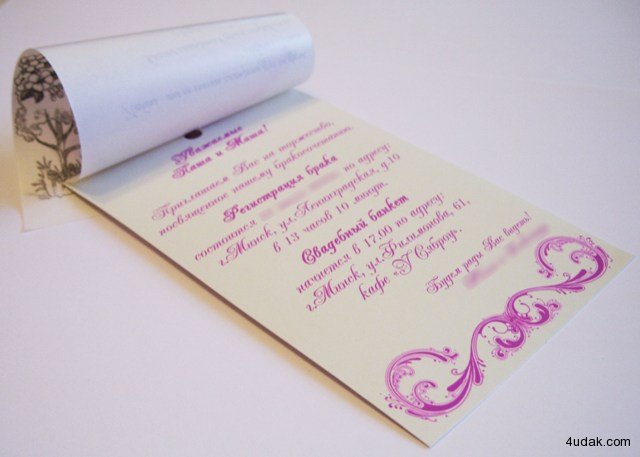 Уважаемые
Паша и Маша!
Приглашаем Вас на торжество,
посвященное нашему бракосочетанию.
Регистрация брака
состоится по адресу:
г.Минск, ул.Ленинградская, д.10
в 13 часов 10 минут.
Свадебный банкет
начнется в 17.00 по адресу:
г.Минск, ул.Филимонова, 61,
кафе "У Сябров".
Будем рады Вас видеть!
4udak.com